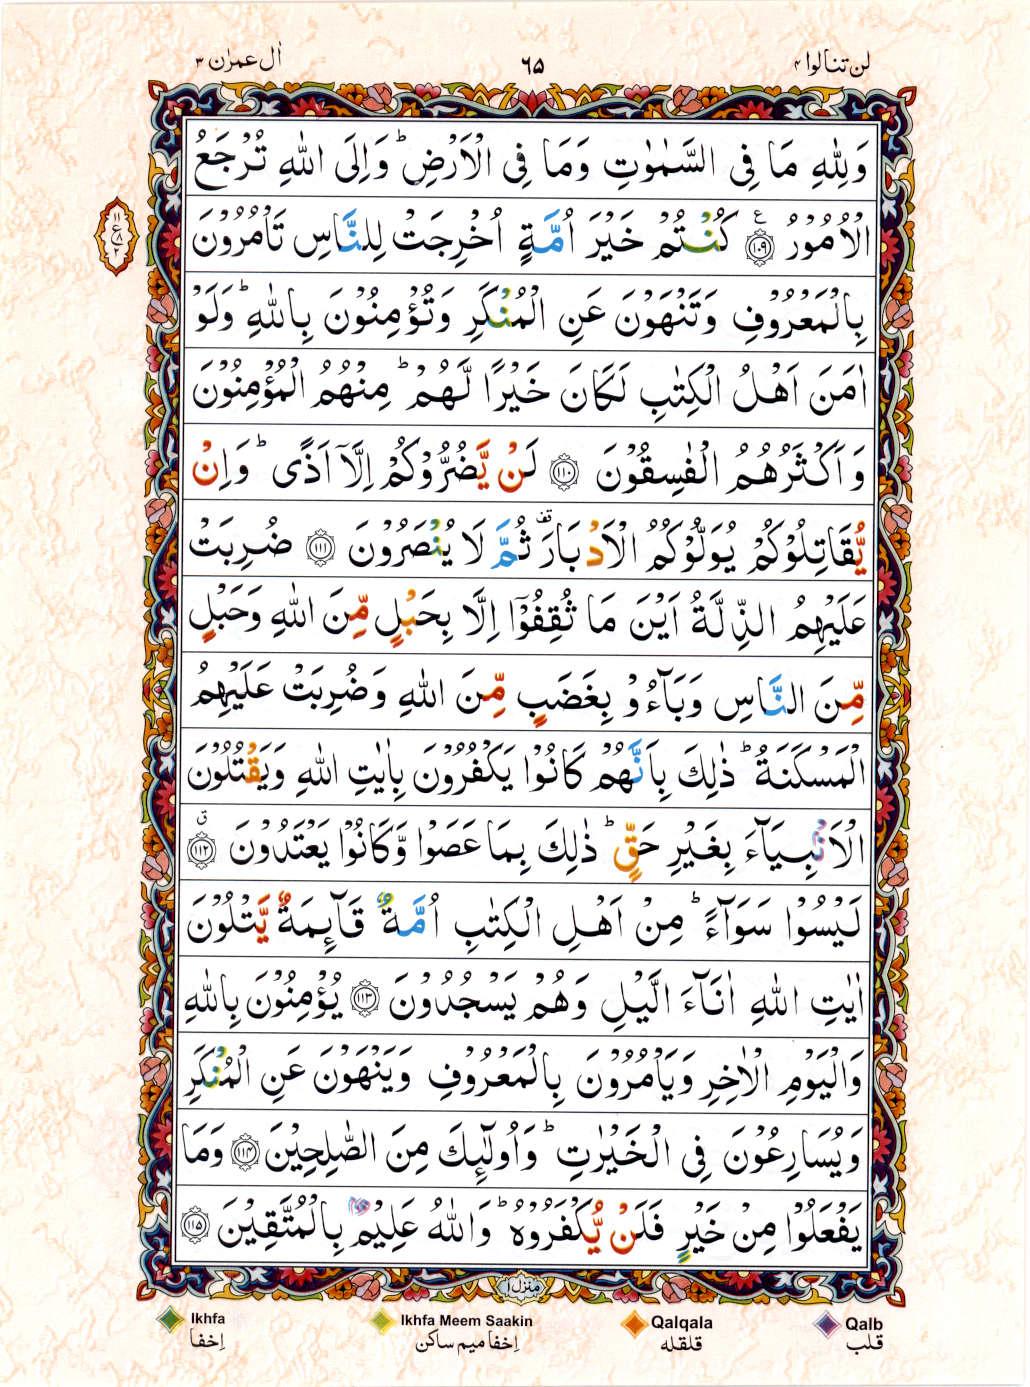 لن تنالوا ۴ ۶۵ اٰل عمرٰن ۳
وَلِلّٰهِ مَا فِی السَّمٰوٰتِ وَمَا فِی الْاَرْضِ ؕ وَاِلَی اللّٰهِ تُرْجَعُ
الْاُمُوْرُ ۧ ﴿۱۰۹﴾ كُنْتُمْ خَیْرَ اُمَّةٍ اُخْرِجَتْ لِلنَّاسِ تَاْمُرُوْنَ
۱۱ ع ۸ ۲
بِالْمَعْرُوْفِ وَتَنْهَوْنَ عَنِ الْمُنْكَرِ وَتُؤْمِنُوْنَ بِاللّٰهِ ؕ وَلَوْ
اٰمَنَ اَهْلُ الْكِتٰبِ لَكَانَ خَیْرًا لَّهُمْ ؕ مِنْهُمُ الْمُؤْمِنُوْنَ
وَاَكْثَرُهُمُ الْفٰسِقُوْنَ ﴿۱۱۰﴾ لَنْ یَّضُرُّوْكُمْ اِلَّاۤ اَذًی ؕ وَاِنْ
یُّقَاتِلُوْكُمْ یُوَلُّوْكُمُ الْاَدْبَارَ ۟ ثُمَّ لَا یُنْصَرُوْنَ ﴿۱۱۱﴾ ضُرِبَتْ
عَلَیْهِمُ الذِّلَّةُ اَیْنَ مَا ثُقِفُوْۤا اِلَّا بِحَبْلٍ مِّنَ اللّٰهِ وَحَبْلٍ
مِّنَ النَّاسِ وَبَآءُوْ بِغَضَبٍ مِّنَ اللّٰهِ وَضُرِبَتْ عَلَیْهِمُ
الْمَسْكَنَةُ ؕ ذٰلِكَ بِاَنَّهُمْ كَانُوْا یَكْفُرُوْنَ بِاٰیٰتِ اللّٰهِ وَیَقْتُلُوْنَ
الْاَنْۢبِیَآءَ بِغَیْرِ حَقٍّ ؕ ذٰلِكَ بِمَا عَصَوْا وَّكَانُوْا یَعْتَدُوْنَ ﴿۱۱۲﴾ ق
لَیْسُوْا سَوَآءً ؕ مِنْ اَهْلِ الْكِتٰبِ اُمَّةٌ قَآىِٕمَةٌ یَّتْلُوْنَ
اٰیٰتِ اللّٰهِ اٰنَآءَ الَّیْلِ وَهُمْ یَسْجُدُوْنَ ﴿۱۱۳﴾ یُؤْمِنُوْنَ بِاللّٰهِ
وَالْیَوْمِ الْاٰخِرِ وَیَاْمُرُوْنَ بِالْمَعْرُوْفِ وَیَنْهَوْنَ عَنِ الْمُنْكَرِ
وَیُسَارِعُوْنَ فِی الْخَیْرٰتِ ؕ وَاُولٰٓىِٕكَ مِنَ الصّٰلِحِیْنَ ﴿۱۱۴﴾ وَمَا
یَفْعَلُوْا مِنْ خَیْرٍ فَلَنْ یُّكْفَرُوْهُ ؕ وَاللّٰهُ عَلِیْمٌۢ بِالْمُتَّقِیْنَ ﴿۱۱۵﴾
منزل ۱
Ikhfa Ikhfa Meem Saakin Qalqala Qalb
اِخفا اِخفا میم ساکن قلقله قلب